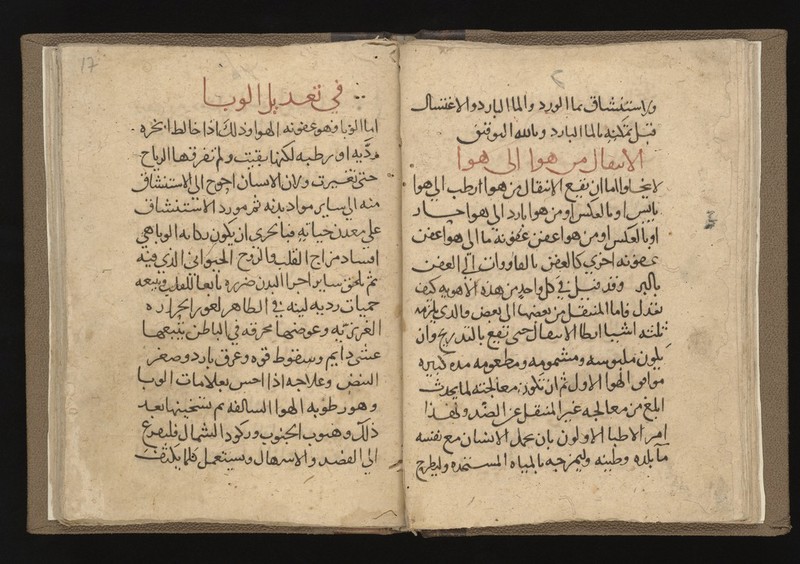 والاستنشاق بماالورد والماالبارد والاغتسال
قبل بالماالبارد وبالله التوفيق
الانتقال من هوا الى هوا
لا يخلواماان يقع الانتقال من هواارطب الى هوا
يابس او بالعكس اومن هوا بارد الى هوا حار
اوبالعكس اومن هوا عفن عفونه ما الى هوا عفن
عفونه اخرى كالعفن الى العفن
بالبر وقد قيل في كل واحد من هذه الاهويه كيف
تعدل فاما المنتقل من بعضها الى بعض والذى يلزمه
ثلثه اشيا ابطا الانتقال حتى تقع بالتدريج وان
يكون ملبوسه ومشمومه ومطعومه مده كبيره
موافق الهوا الاول ثم ان تكون معالجته لما يحدث
ابلغ من معالجه غير المنتقل عن الضد ولهذا
امر الاطبا الاولون بان يحمل الانسان مع نفسه
ما بلده وطينه وليمزجه بالمياه المستجده وليطرح
17
في تعديل الوبا
اما الوبا وهو عفونه الهوا وذلك اذا خالط ابخره
رديه او رطبه لكنها بقيت ولم تفرقها الرياح
حتى تغيرت ولان الانسان احوج الى الاستنشاق
منه الى ساير مواد بدنه ثم مورد الاستنشاق
على معدن حياته فبالحرى ان يكون الوبا هي
افساد مزاج القلب والروح الحيواني الذى فيه
ثم يلحق ساير اجزا البدن ضرره تابعا للقلب ويتبعه
حميات رديه لينه في الظاهر لغور الحراره
الغريزيه وعوضها محرقه في الباطن يتبعها
غشى دايم وسقوط قوه وعرق بارد وصغر
النبض وعلاجه اذا احس بعلامات الوبا
وهو رطوبه الهوا السالفه ثم تسخينها بعد
ذلك وهبوب الجنوب وركود الشمال فليفزع
الى الفصد والاسهال ويستعمل